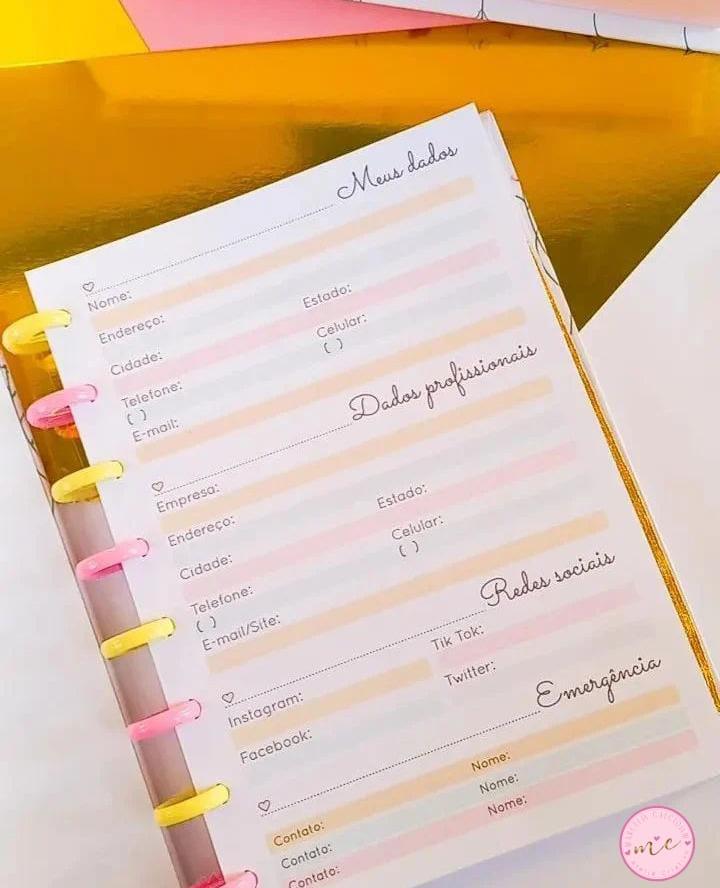 Meus dados
Nome:
Endereço:
Cidade: Estado:
Telefone: Celular:
( ) ( )
E-mail:
Dados profissionais
Empresa:
Endereço:
Cidade: Estado:
Telefone: Celular:
( ) ( )
E-mail/Site:
Redes sociais
Instagram: Tik Tok:
Facebook: Twitter:
Emergência
Contato: Nome:
Contato: Nome:
Contato: Nome:
mc